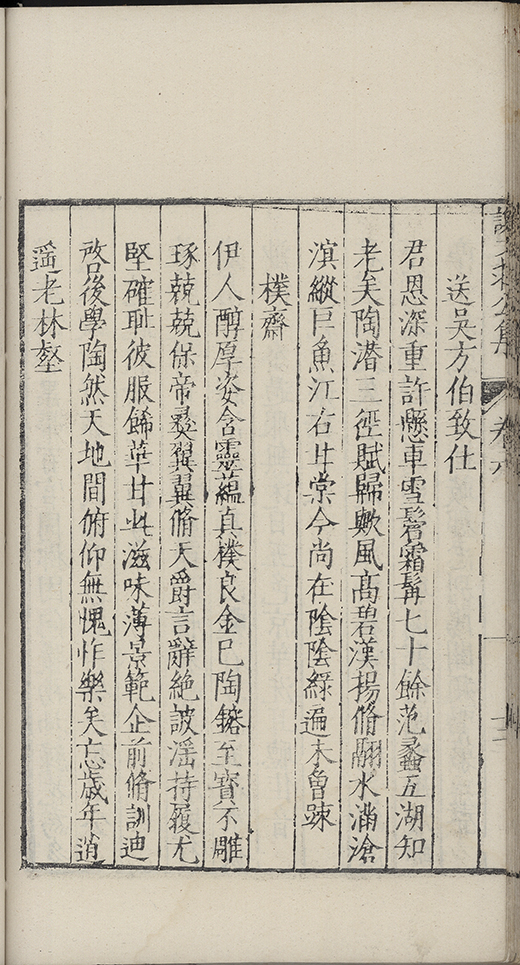 送吳方伯致仕
君恩深重許懸車雪鬢霜髯七十餘范蠡五湖知
老矣陶潛三徑賦歸歟風高碧漢揚脩翮水滿滄
溟縱巨魚江右甘棠今尚在陰陰綠遍未曾踈
樸齋
伊人醇厚姿含靈蘊真樸良金巳陶鎔至寶不雕
琢兢兢保帝彛翼翼脩天爵言辭絶詖滛持履尤
堅確耻彼服餙華甘此滋味薄景範企前脩訓迪
啓後學陶然天地間俯仰無愧怍樂矣忘歲年逍
遥老林壑
公集 卷六